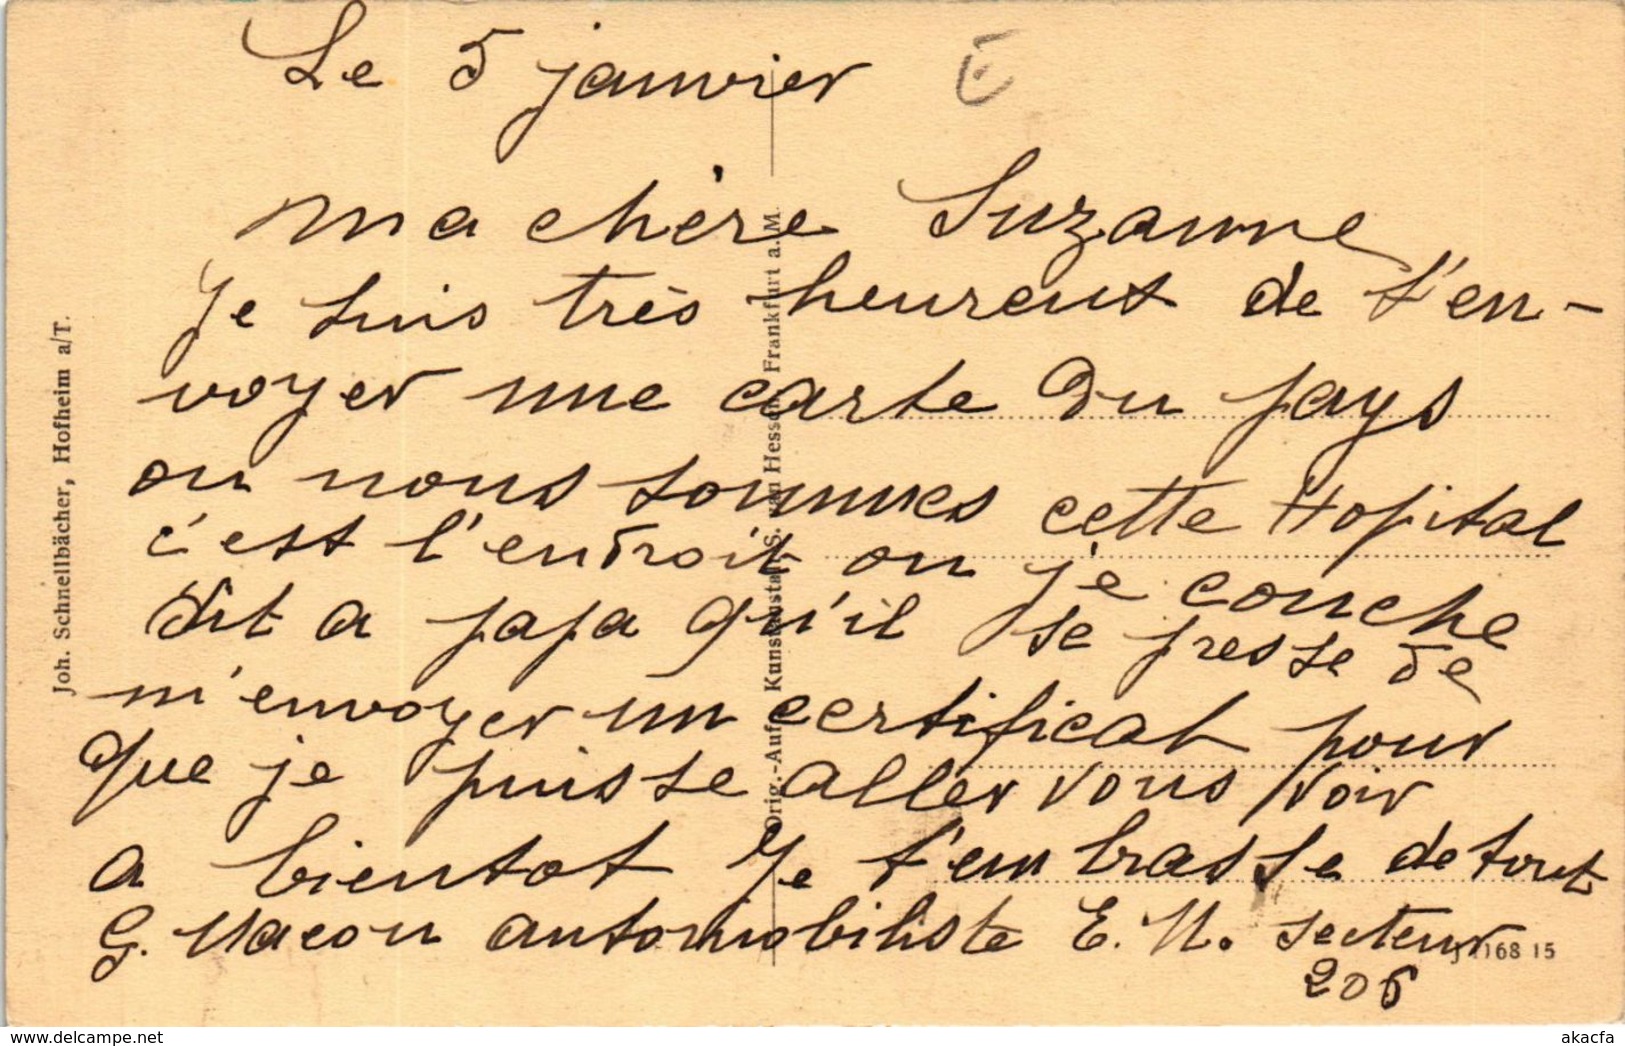 Le 5 janvier
ma chère Suzanne
Je suis très heureux de t'en-
voyer une carte du pays
ou nous sommes cette Hopital
c'est l'endroit ou je couche
dit a papa qu'il se presse de
m'envoyer un certificat pour
que je puisse aller vous voir
a bientot Je t'embrasse de tout
G. Macon automobiliste E. M. secteur
206
Joh. Schnellbächer, Hofheim a/T.
Orig.-Aufn. Kunstanstalt S. van Hessen, Frankfurt a. M.
168 15
www.delcampe.net
akacfa